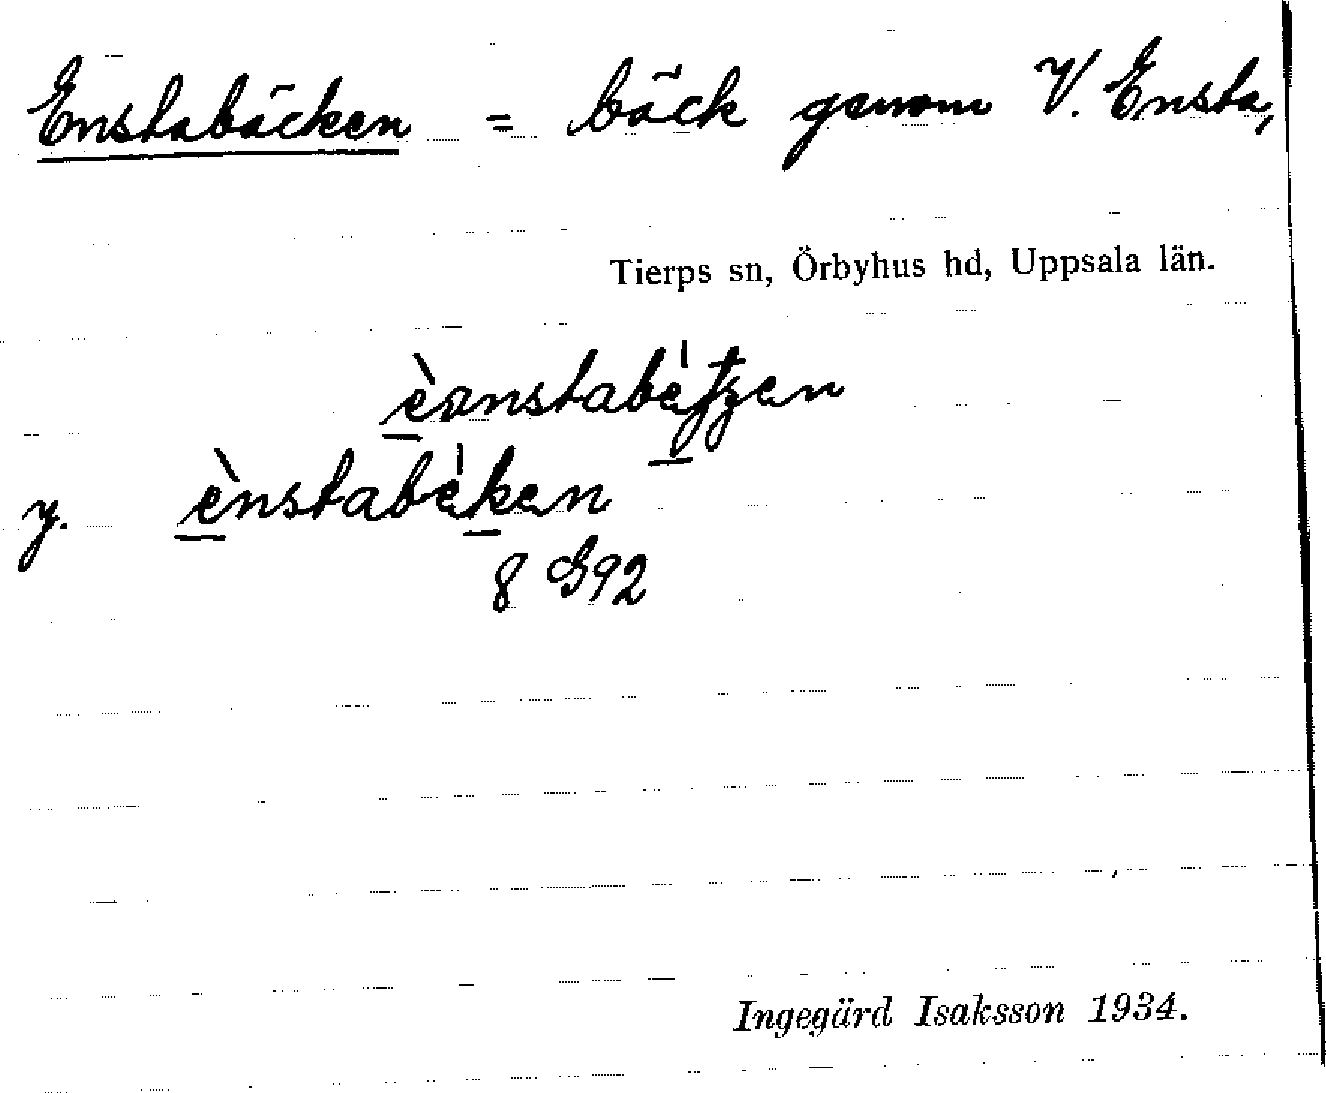 Enstabäcken = bäck genom V. Ensta,
Tierps sn, Örbyhus hd, Uppsala län.
y. ènstabèken
8 G92
Ingegärd Isaksson 1934.